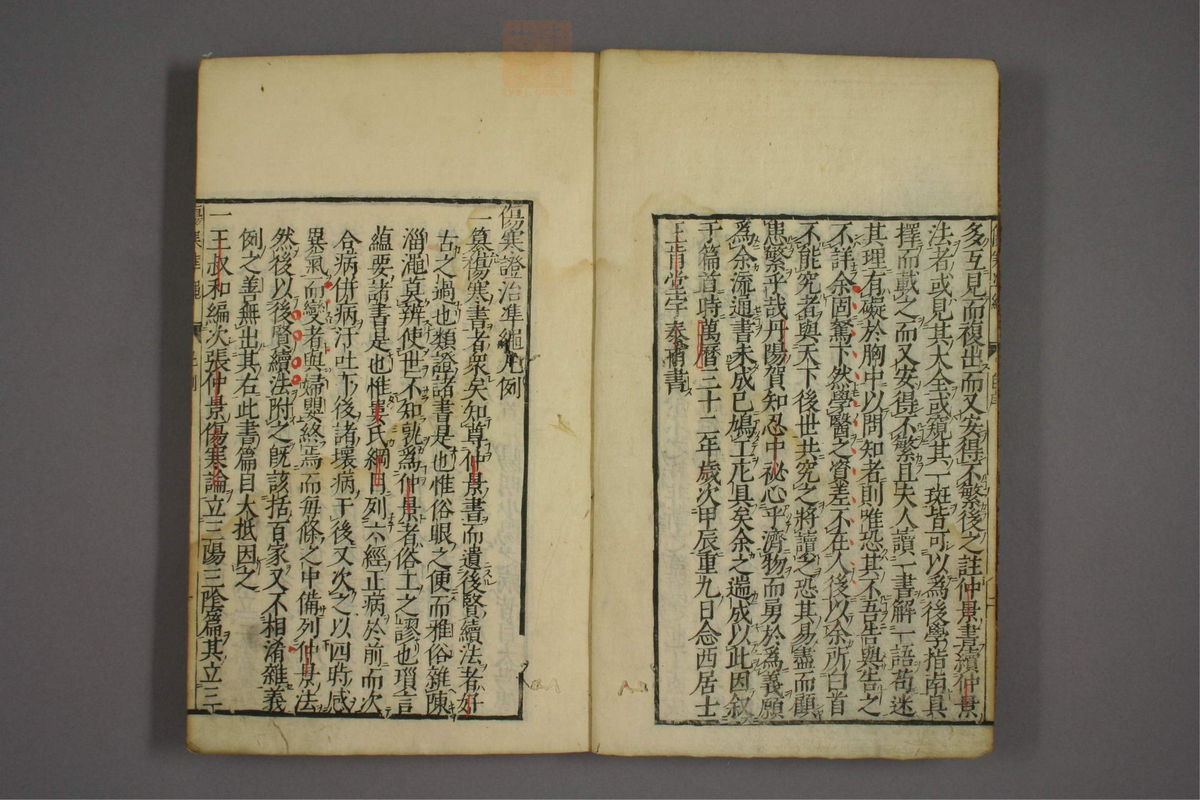 多互見而複出而又安得不繁後之註仲景書續仲景
法者或見其大全或窺其一斑皆可以爲後學指南具
擇而載之而又安得不繁且夫人讀一書解一語苟迷
其理有礙於胸中以問知者則唯恐其不吾告與告之
不詳余固駑下然學醫之資差不在人後以余所白首
不能究者與天下後世共究之將讀之恐其易盡而顧
患繁乎哉丹陽賀知忍中祕心乎濟物而勇於爲義願
爲余流通書未成已鳩工庀具矣余之遄成以此因叙
于篇首時萬曆三十二年歲次甲辰重九日念西居士
王肯堂宇泰甫書
傷寒證治準繩凡例
一纂傷寒書者衆矣知尊仲景書而遺後賢續法者好
古之過也類證諸書是也惟俗眼之便而雅俗雜陳
淄澠莫辨使世不知孰爲仲景者俗工之謬也瑣言
蘊要諸書是也惟婁氏綱目列六經正病於前而次
合病併病汗吐下後諸壞病于後又次之以四時感
異氣而變者與婦嬰終焉而每條之中備列仲景法
然後以後賢續法附之既該括百家又不相淆雜義
例之善無出其右此書篇目大抵因之
一王叔和編次張仲景傷寒論立三陽三陰篇其立三